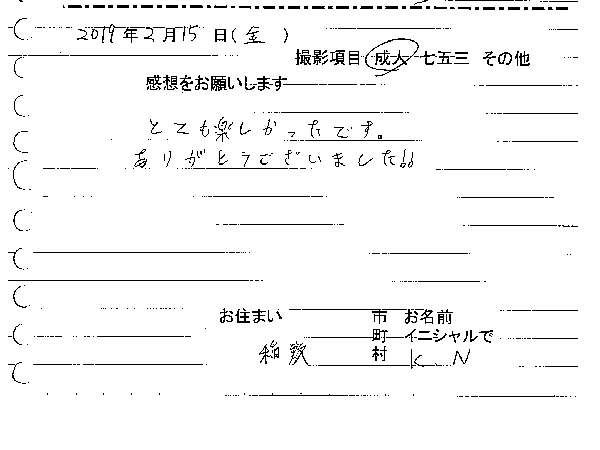 2019年2月15日(金)
撮影項目 成人 七五三 その他
感想をお願いします
とても楽しかったです。
ありがとうございました!!
お住まい 市 お名前
町 イニシャルで
稲敷 村 K、N